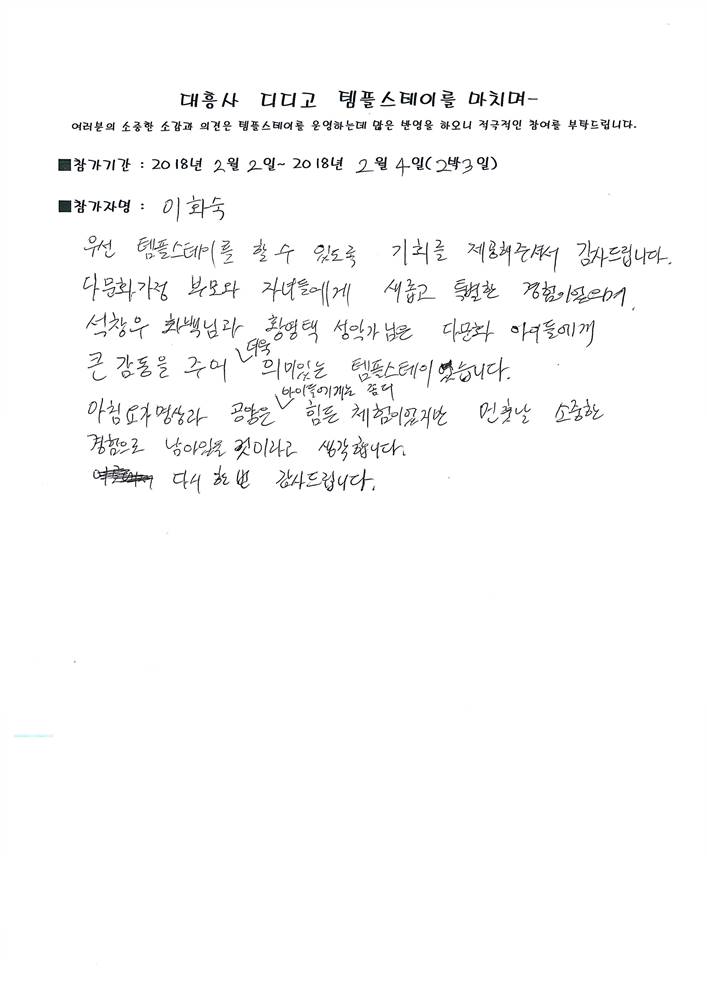 대흥사 디디고 템플스테이를 마치며-
여러분의 소중한 소감과 의견은 템플스테이를 운영하는데 많은 반영을 하오니 적극적인 참여를 부탁드립니다.
■참가기간 : 2018년 2월 2일~ 2018년 2월 4일(2박3일)
■참가자명 : 이화숙
우선 템플스테이를 할 수 있도록 기회를 제공해주셔서 감사드립니다.
다문화가정 부모와 자녀들에게 새롭고 특별한 경험이었으며,
석창우 화백님과 황영택 성악가님은 다문화 아이들에게
큰 감동을 주어 더욱 의미있는 템플스테이 였습니다.
아침요가명상과 공양은 아이들에게는 좀더 힘든 체험이었지만 먼훗날 소중한
경험으로 남아있을 것이라고 생각합니다.
다시 한번 감사드립니다.